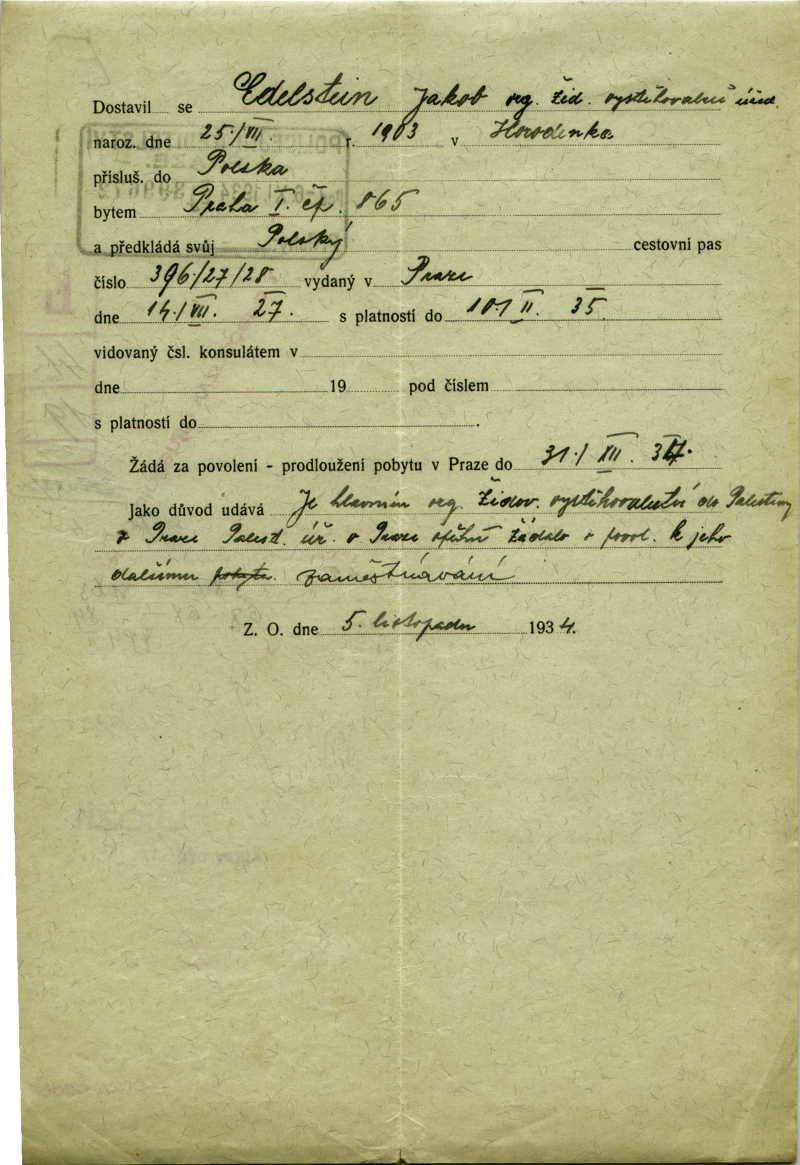 Dostavil se Edelstein Jakob org. žid. vystěhovalec. úřad.
naroz. dne 25./VII. r. 1903 v Horodenka
přísluš. do Polska
bytem Praha I. čp. 865
a předkládá svůj Polský cestovní pas
číslo 396/27/28 vydaný v Praze
dne 14./VII. 27. s platností do 10./II. 35.
vidovaný čsl. konsulátem v
dne 19 pod číslem
s platností do .
Žádá za povolení - prodloužení pobytu v Praze do 31./XII.
Jako důvod udává Je hlavním org. židov. vystěhovalectví do Palestiny
z Praze Palest. úř. v Praze opětně žádalo o povol. k jeho
dalšímu pobytu. zaměstnávání
Z. O. dne 5. listopadu 1934.